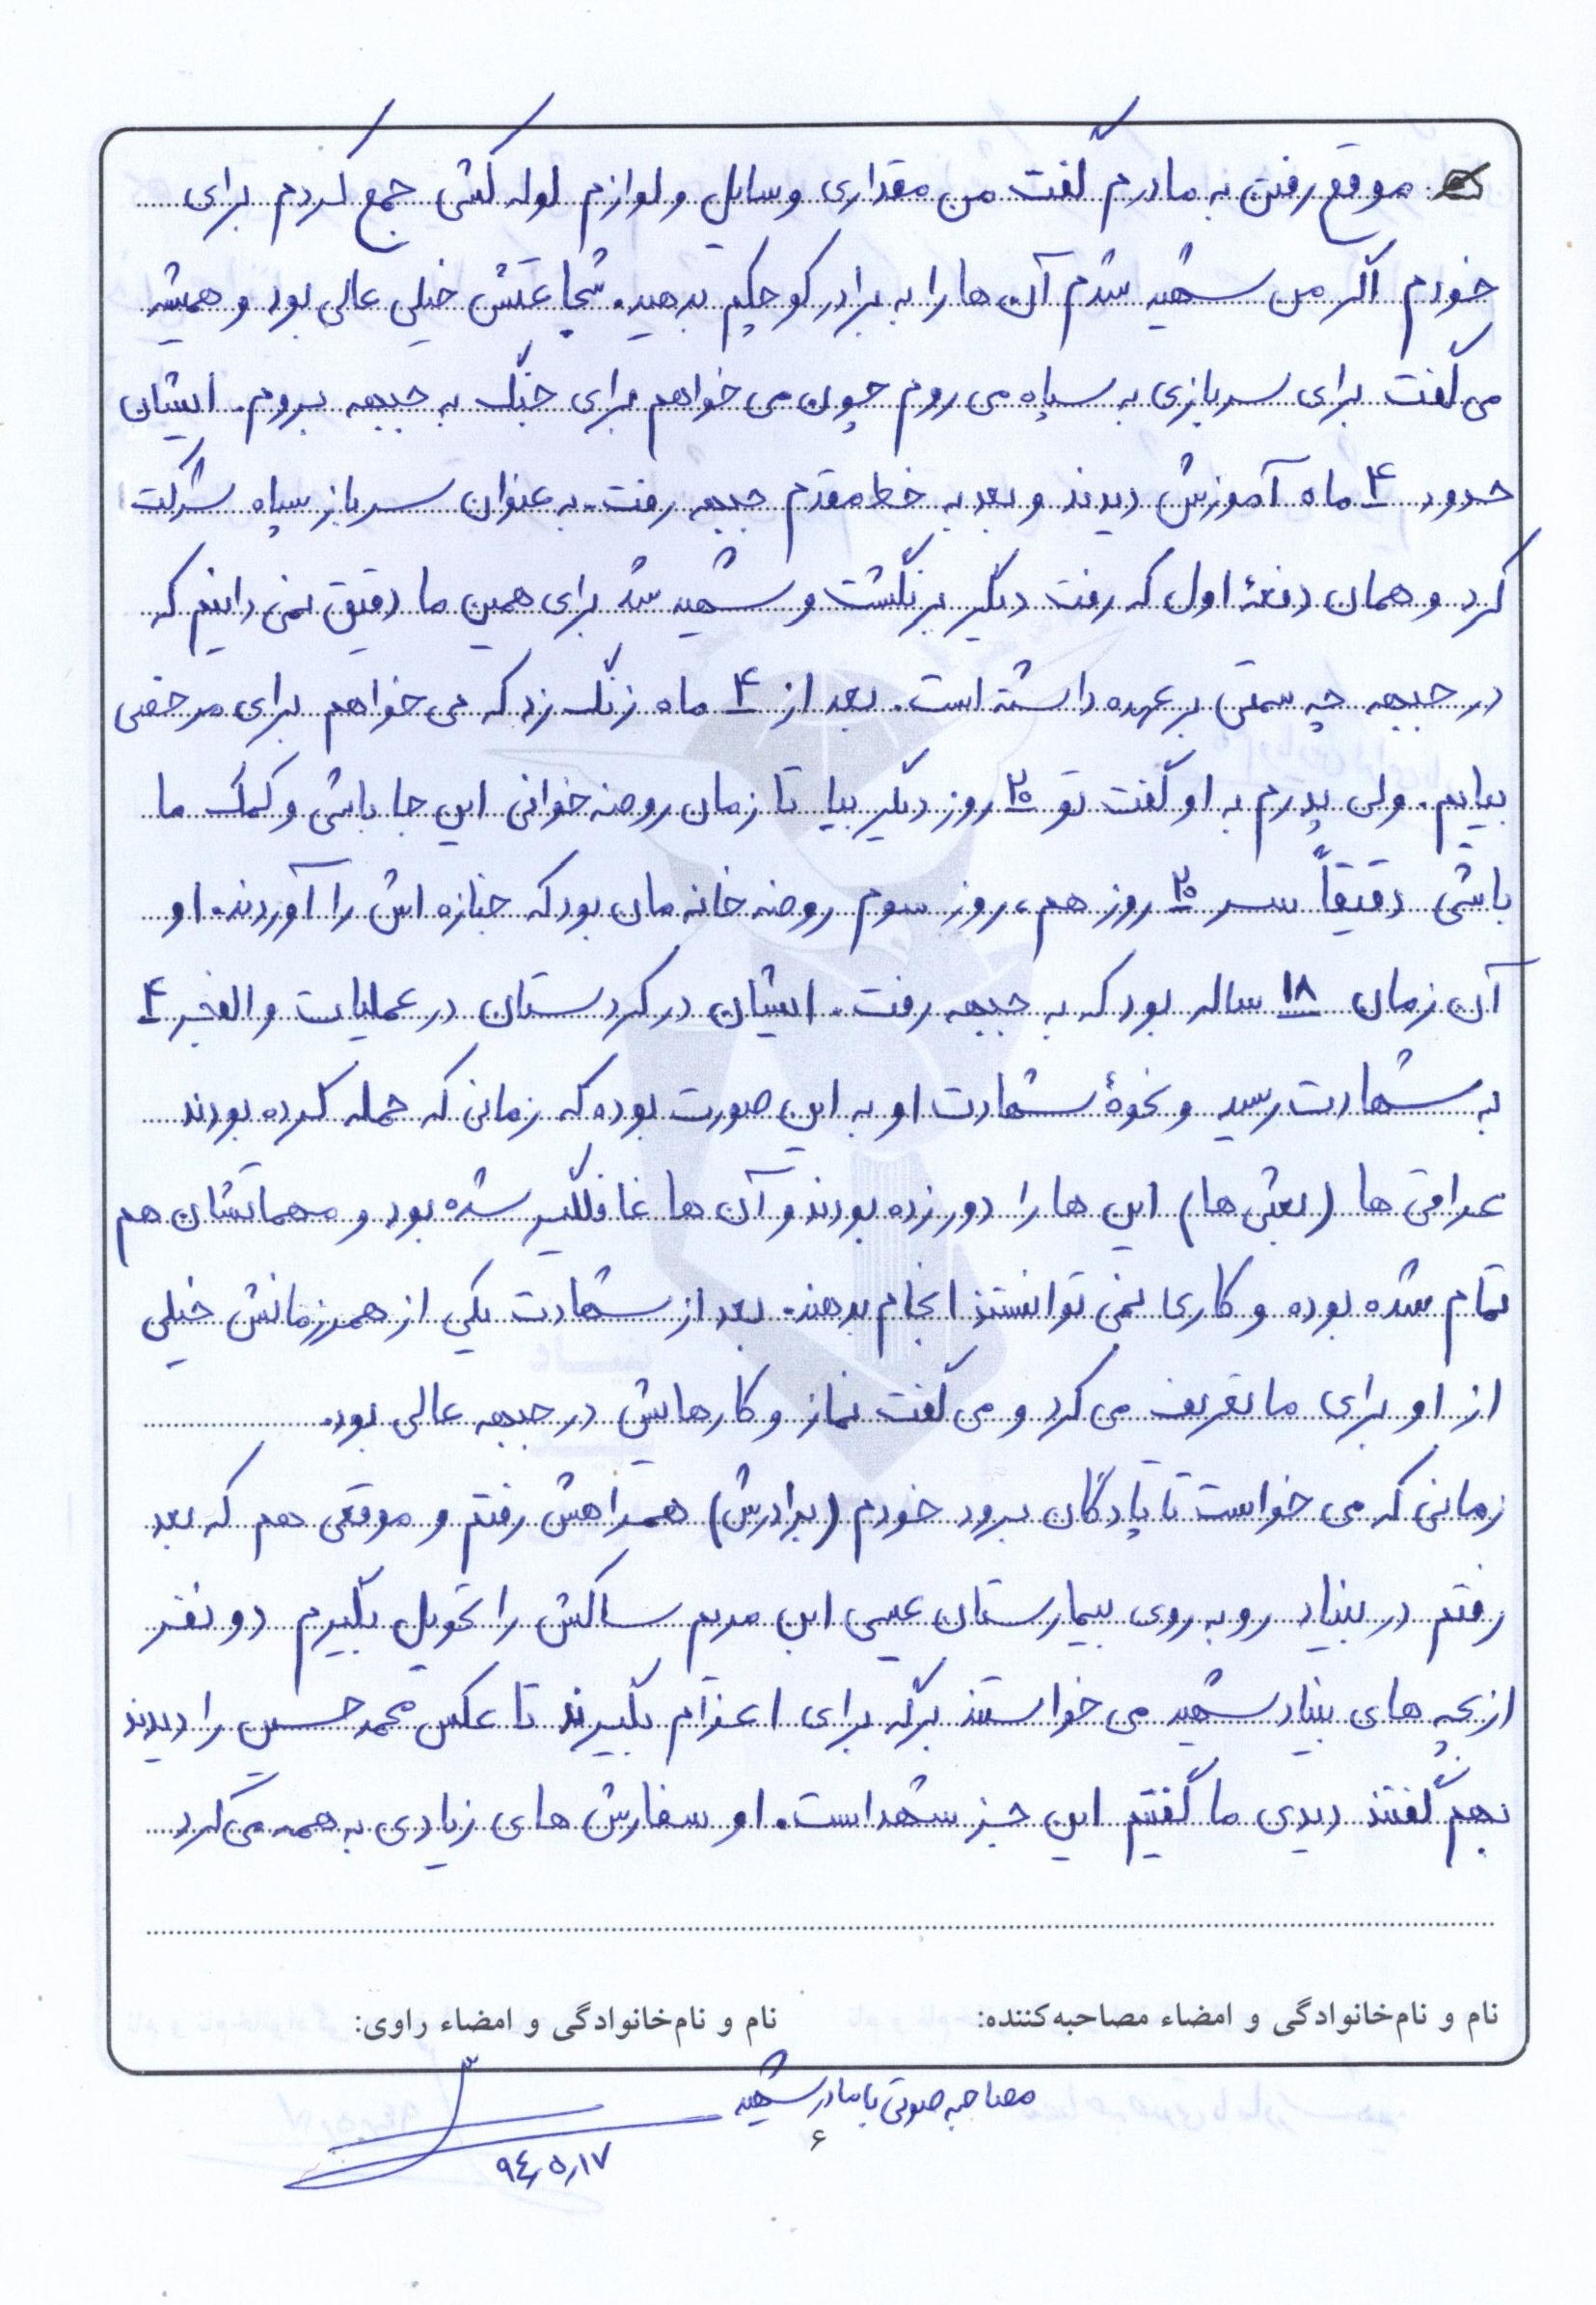 موقع رفتن به مادرم گفت من مقداری وسایل و لوازم لوله کشی جمع کردم برای
خودم اگر من شهید شدم آن ها را به برادر کوچکم بدهید. شجاعتش خیلی عالی بود و همیشه
می گفت برای سربازی به سپاه می روم چون می خواهم برای جنگ به جبهه بروم. ایشان
حدود ۴ ماه آموزش دیدند و بعد به خط مقدم جبهه رفت. به عنوان سرباز سپاه شرکت
کرد و همان دفعۀ اول که رفت دیگر برنگشت و شهید شد برای همین ما دقیق نمی دانیم که
در جبهه چه سمتی بر عهده داشته است. بعد از ۴ ماه زنگ زد که می خواهم برای مرخصی
بیایم. ولی پدرم به او گفت تو ۲۰ روز دیگر بیا تا زمان روضه خوانی این جا باشی و کمک ما
باشی دقیقاً سر ۲۰ روز هم، روز سوم روضه خانه مان بود که جنازه اش را آوردند. او
آن زمان ۱۸ ساله بود که به جبهه رفت. ایشان در کردستان در عملیات والفجر ۴
به شهادت رسید و نحوۀ شهادت او به این صورت بوده که زمانی که حمله کرده بودند
عراقی ها (بعثی ها) این ها را دور زده بودند و آن ها غافلگیر شده بود و مهماتشان هم
تمام شده بوده و کاری نمی توانستند انجام بدهند. بعد از شهادت یکی از همرزمانش خیلی
از او برای ما تعریف می کرد و می گفت نماز و کارهایش در جبهه عالی بود.
زمانی که می خواست تا پادگان برود خودم (برادرش) همراهش رفتم و موقعی هم که بعد
رفتم در بنیاد روبه روی بیمارستان عیسی ابن مریم ساکش را تحویل بگیرم دو نفر
از بچه های بنیاد شهید می خواستند برگه برای اعزام بگیرند تا عکس محمد حسین را دیدند
بهم گفتند دیدی ما گفتیم این جز شهداست. او سفارش های زیادی به همه می کرد
نام و نام‌خانوادگی و امضاء مصاحبه‌کننده: نام و نام‌خانوادگی و امضاء راوی:
مصاحبه صوتی با مادر شهید
۶
۹۴٫۵٫۱۷